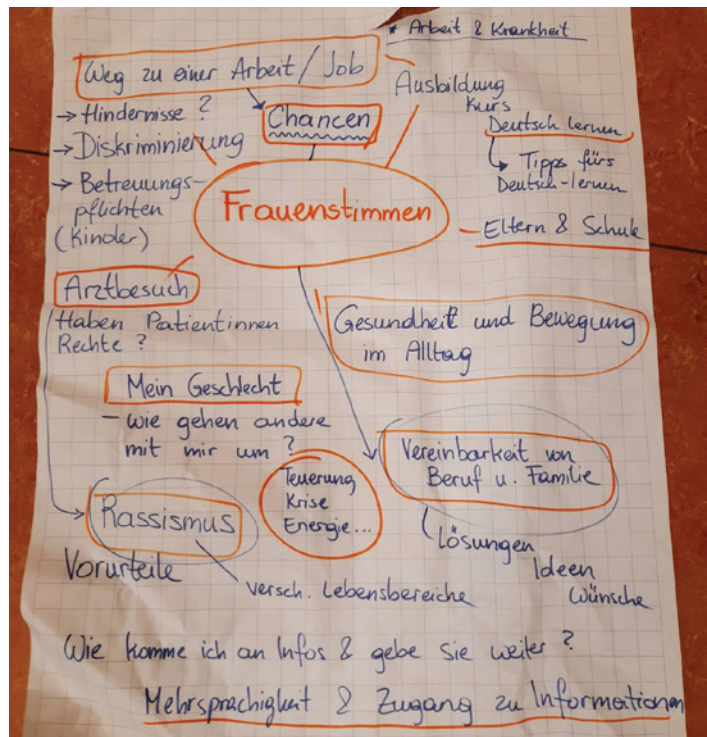 * Arbeit & Krankheit
Weg zu einer Arbeit / Job
→ Hindernisse ?
→ Diskriminierung
→ Betreuungs-
pflichten
(Kinder)
Chancen
Ausbildung
Kurs
Deutsch lernen
Tipps fürs
Deutsch-lernen
Frauenstimmen
– Eltern & Schule
Arztbesuch
Haben Patientinnen
Rechte ?
Gesundheit und Bewegung
im Alltag
Mein Geschlecht
– wie gehen andere
mit mir um ?
Teuerung
Krise
Energie...
Vereinbarkeit von
Beruf u. Familie
Lösungen
Ideen
Wünsche
Rassismus
Vorurteile
versch. Lebensbereiche
Wie komme ich an Infos & gebe sie weiter ?
Mehrsprachigkeit & Zugang zu Informationen